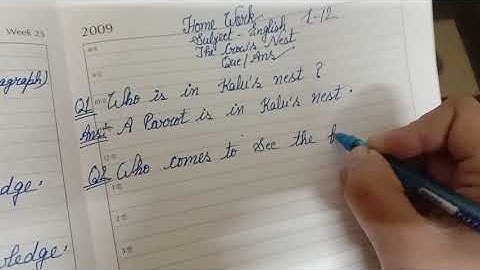 Week 23
2009
Home Work
L-12
Subject - English
The Crow's Nest
Que/Ans
agraph)
Q1 Who is in Kalu's nest ?
Ans: A Parrot is in Kalu's nest.
Q2 Who comes to see the
edge.
ledge.